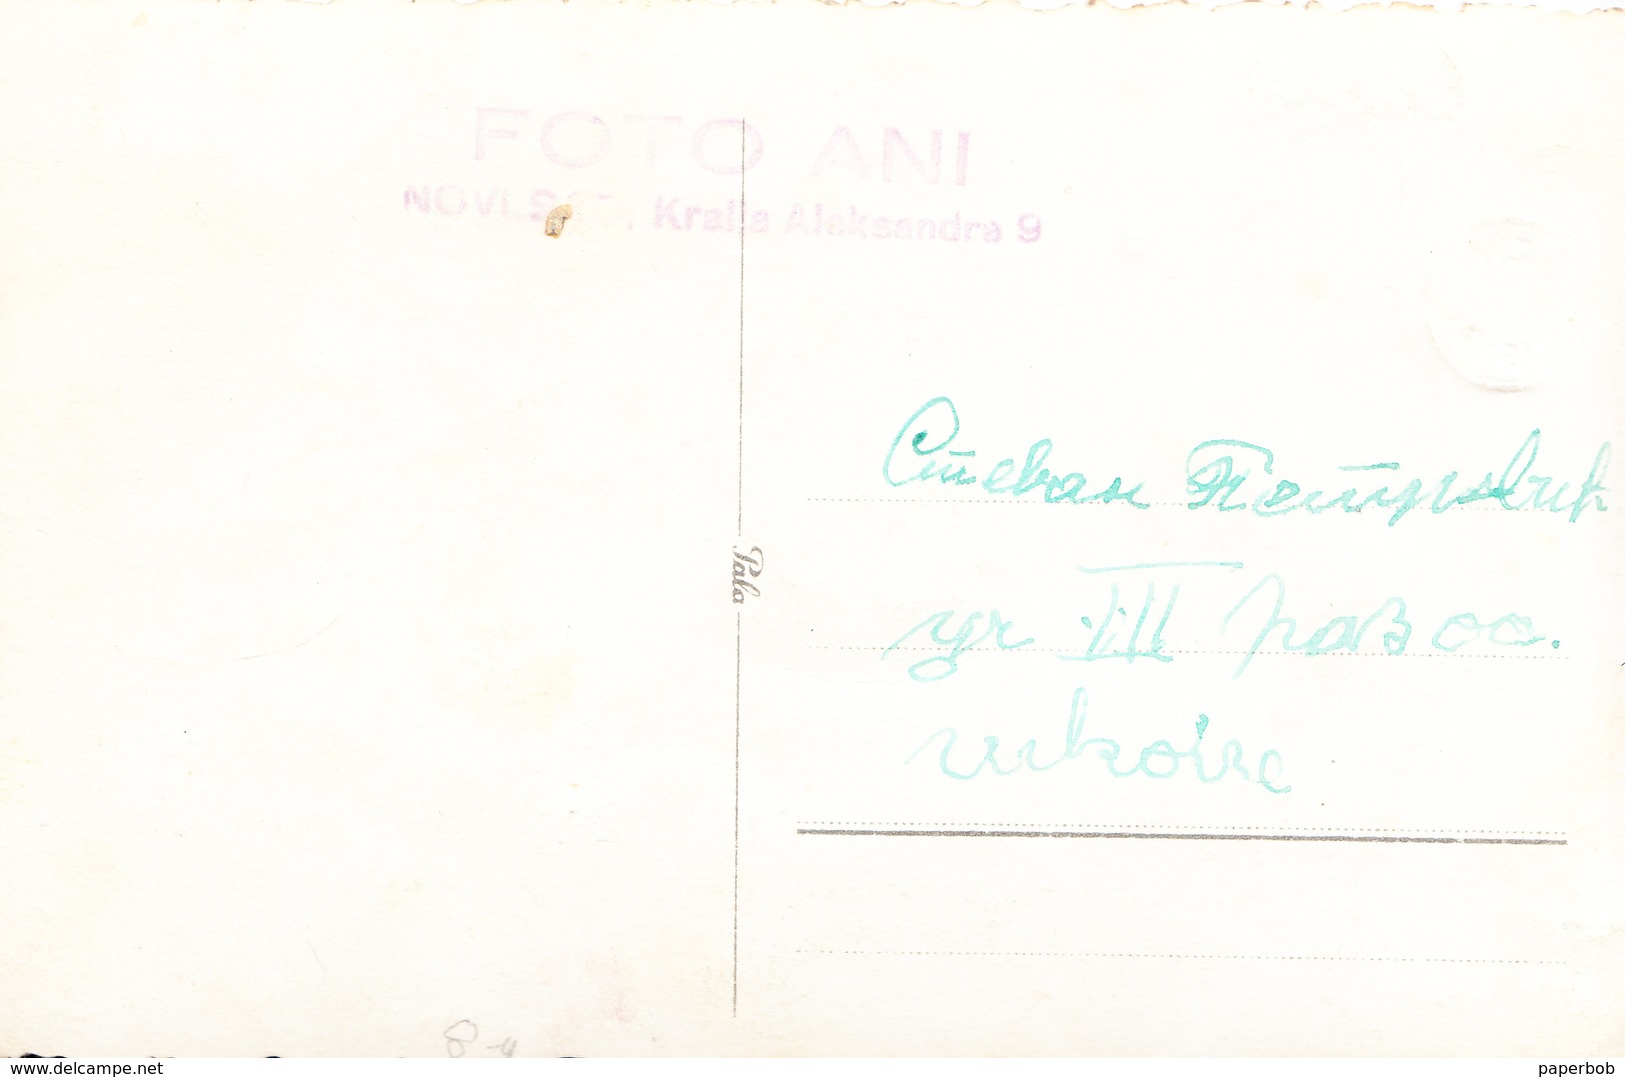 FOTO ANI
NOVI SAD, Kralja Aleksandra 9
Стеван Петровић
уч III раз оо.
школе
Pala
8-4
www.delcampe.net
paperbob